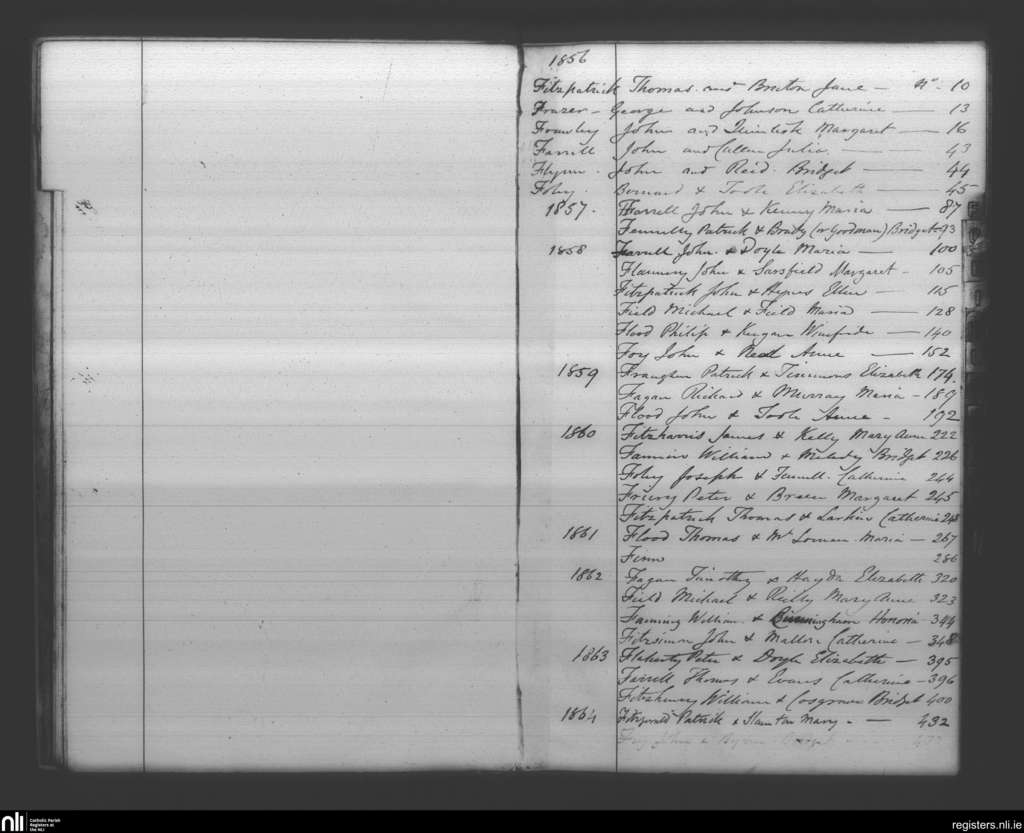 1856
Fitzpatrick Thomas and Bruton Jane — No. 10
Frazer — George and Johnson Catherine — 13
Frawley John and Margaret — 16
Farrell John and Cullen Julia — 43
Flynn John and Reid Bridget — 44
Foley Bernard & Toole Elizabeth — 45
1857. Farrell John & Kenny Maria — 87
Fennelly Patrick & Brady (or Goodman) Bridget 93
1858 Farrell John & Doyle Maria — 100
Flannery John & Sarsfield Margaret - 105
Fitzpatrick John & Hynes Ellen — 115
Field Michael & Field Maria — 128
Flood Philip & Keegan Winefride — 140
Foy John & Anne — 152
1859 Patrick & Timmons Elizabeth 174.
Fagan Richard & Murray Maria - 189
Flood John & Toole Anne - 192
1860 Fitzharris James & Kelly Mary Anne 222
Fannin William & Bridget 226
Foley Joseph & Catherine 244
Peter & Breen Margaret 245
Fitzpatrick Thomas & Larkin Catherine 248
1861 Flood Thomas & Maria — 267
Finn 286
1862 Fagan Timothy & Hayde Elizabeth 320
Field Michael & Reilly Mary Anne 323
Fanning William & Birmingham Honoria - 344
Fitzsimon John & Mallon Catherine — 348
1863 Flaherty Peter & Doyle Elizabeth — 395
Farrell Thomas & Evans Catherine - 396
Fitzhenry William & Cosgrave Bridget 400
1864 Fitzgerald Patrick & Mary - — 432
Foy John & Byrne Bridget
nli Catholic Parish
Registers at
the NLI
registers.nli.ie